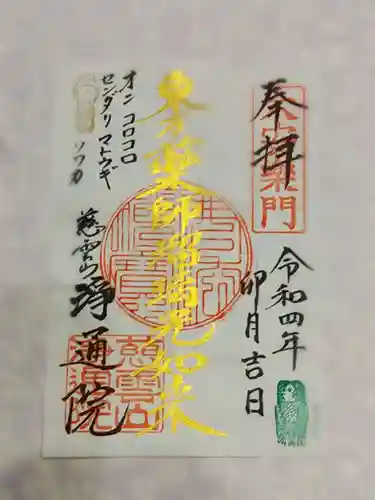 奉拝
令和四年
卯月吉日
東方薬師瑠璃光如来
オン コロコロ
センダリ マトウギ
ソワカ
慈雲山
浄通院